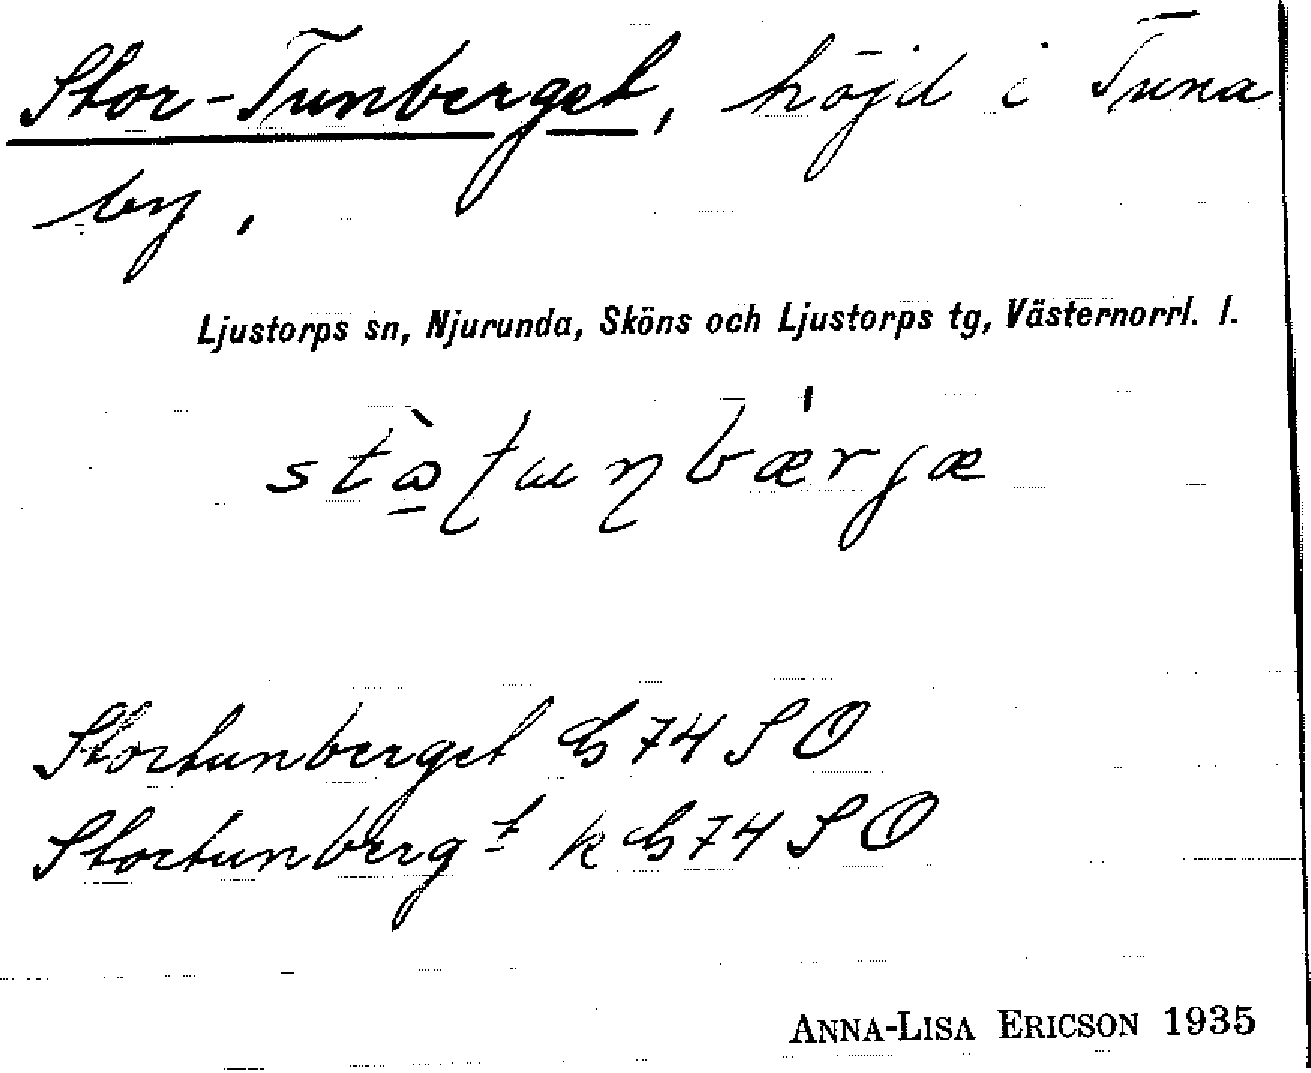 Stor-Tunberget, höjd i Tuna
by.
Ljustorps sn, Njurunda, Sköns och Ljustorps tg, Västernorrl. l.
Stortunberget G 74 SO
Stortunbergt k G 74 SO
ANNA-LISA ERICSON 1935